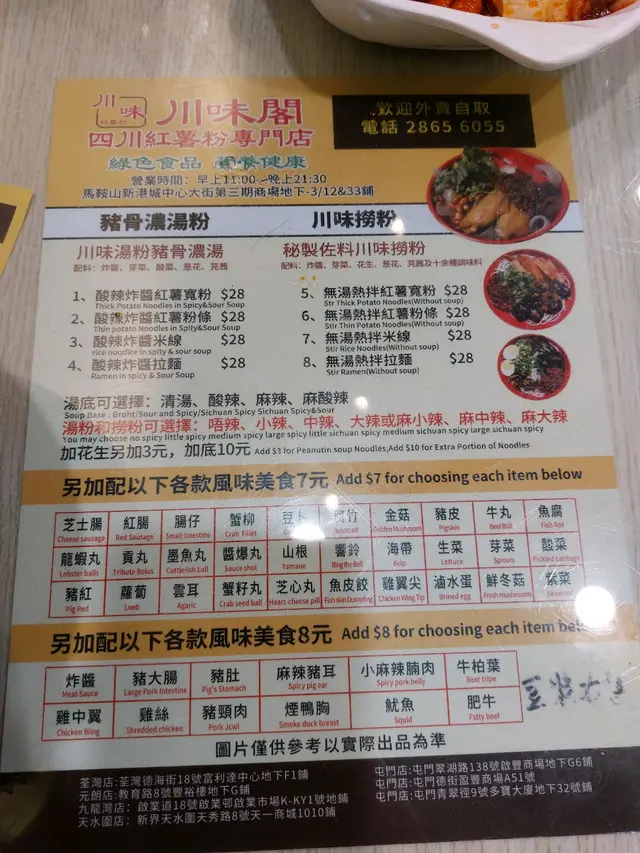 川味
川味閣
四川紅薯粉專門店
綠色食品 健康
營業時間：早上11:00--晚上21:30
馬鞍山新港城中心大街第三期商場地下-3/12&33鋪
歡迎外賣自取
電話 2865 6055
豬骨濃湯粉
川味撈粉
川味湯粉豬骨濃湯
配料：炸醬、芽菜、酸菜、葱花、芫茜
秘製佐料川味撈粉
配料：炸醬、芽菜、花生、葱花、芫茜及十余種調味料
1、酸辣炸醬紅薯寬粉 $28
Thick Potato Noodles in Spicy&Sour Soup
2、酸辣炸醬紅薯粉條 $28
Thin potato Noodles in Spity&Sour Soup
3、酸辣炸醬米線 $28
rice noodlce in spity & sour soup
4、酸辣炸醬拉麵 $28
Ramen in spicy & Sour Soup
5、無湯熱拌紅薯寬粉 $28
Stir Thick Potato Noodles(Without soup)
6、無湯熱拌紅薯粉條 $28
Stir Thin Potato Noodles(Without soup)
7、無湯熱拌米線 $28
Stir Rice Noodles(Without soup)
8、無湯熱拌拉麵 $28
Stir Ramen(Without soup)
湯底可選擇：清湯、酸辣、麻辣、麻酸辣
Soup Base : Broht/Sour and Spicy/Sichuan Spicy Sichuan Spicy&Sour
湯粉和撈粉可選擇：唔辣、小辣、中辣、大辣或麻小辣、麻中辣、麻大辣
You may choose no spicy little spicy medium spicy large spicy little sichuan spicy medium sichuan spicy large sichuan spicy
加花生另加3元，加底10元 Add $3 for Peanutin soup Noodles,Add $10 for Extra Portion of Noodles
另加配以下各款風味美食7元 Add $7 for choosing each item below
芝士腸 紅腸 腸仔 蟹柳 豆卜 腐竹 金菇 豬皮 牛丸 魚腐
Cheese sausage Red Sausage Small Intestine Crab Fillet Golden Mushroom Pigskin Beef Ball Fish Rot
龍蝦丸 貢丸 墨魚丸 醬爆丸 山根 響鈴 海帶 生菜 芽菜 酸菜
Lobster balls Tribute Bolus Cuttlerish ball Sauce shot Yamane Ring the Bell Kelp Lettuce Sprouts Pickled cabbage
豬紅 蘿蔔 雲耳 蟹籽丸 芝心丸 魚皮餃 雞翼尖 滷水蛋 鮮冬菇 紫菜
Pig Red Loeb Agaric Crab seed ball Heart-cheese pill Fish skin Dumpting Chicken Wing Tip Brined egg Fresh mushrooms Seaweed
另加配以下各款風味美食8元 Add $8 for choosing each item below
炸醬 豬大腸 豬肚 麻辣豬耳 小麻辣腩肉 牛柏葉
Meat Sauce Large Pork Intestine Pig's Stomach Spicy pig ear Spicy pork belly Beef tripe
雞中翼 雞絲 豬頸肉 煙鴨胸 魷魚 肥牛
Chicken Wing Shredded chicken Pork Jcwl Smoke duck breast Squid Fstty beef
圖片僅供參考以實際出品為準
荃灣店:荃灣德海街18號富利達中心地下F1鋪
元朗店:教育路8號豐裕樓地下G鋪
九龍灣店：啟業道18號啟業邨啟業市場K-KY1號地鋪
天水圍店：新界天水圍天秀路8號天一商城1010鋪
屯門店:屯門翠湖路138號啟豐商場地下G6鋪
屯門店:屯門德街盈豐商場A51號
屯門店:屯門青翠徑9號多寶大廈地下32號鋪